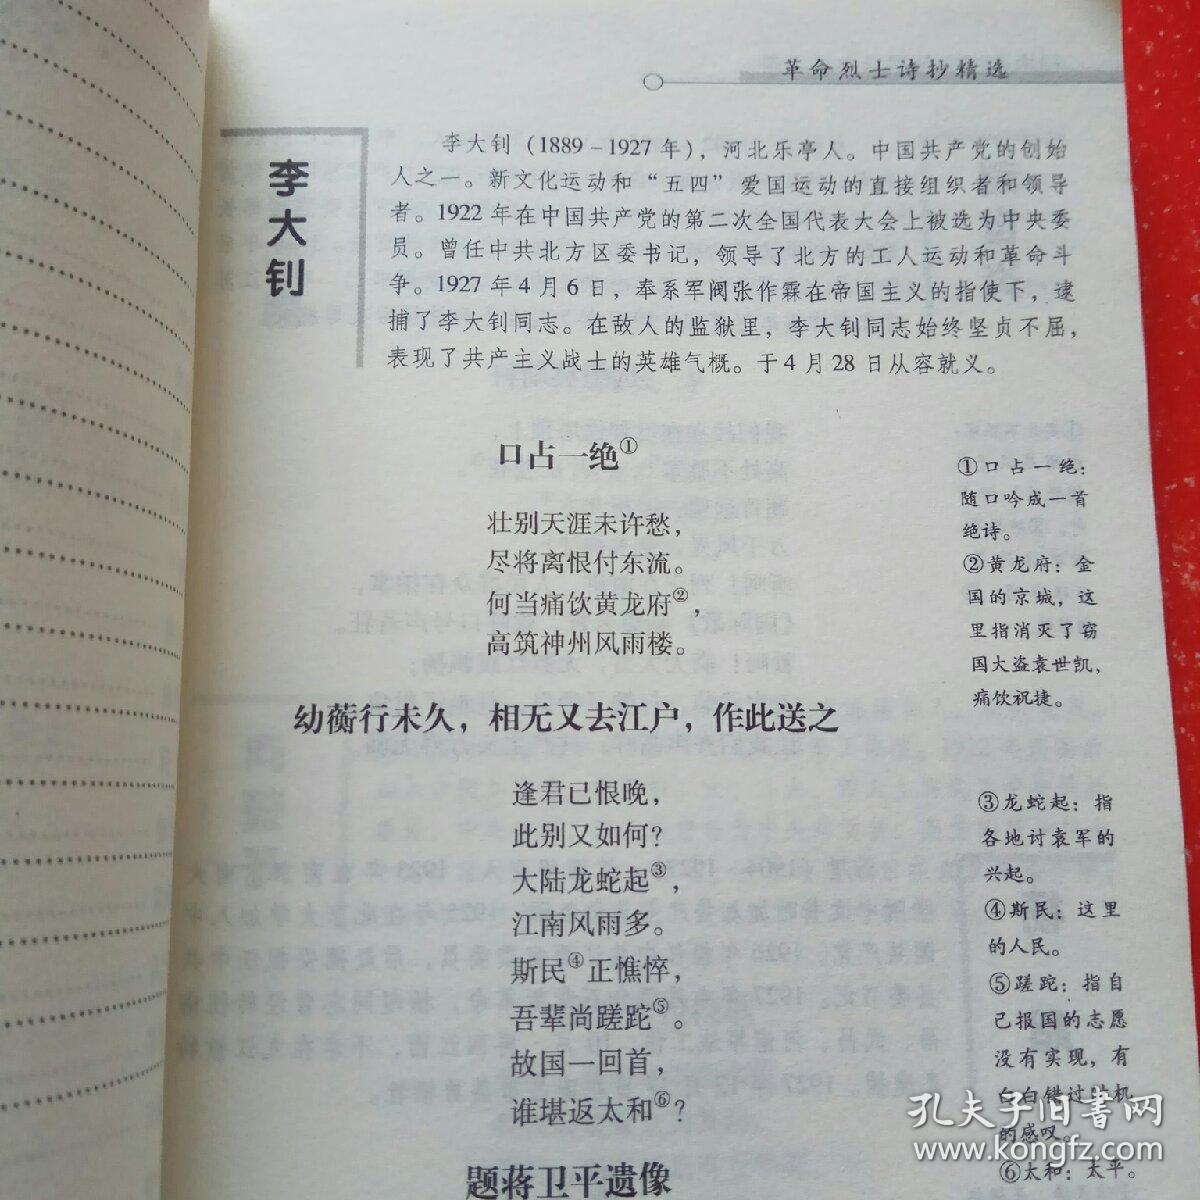 革命烈士诗抄精选
李大钊
李大钊（1889－1927年），河北乐亭人。中国共产党的创始
人之一。新文化运动和“五四”爱国运动的直接组织者和领导
者。1922年在中国共产党的第二次全国代表大会上被选为中央委
员。曾任中共北方区委书记，领导了北方的工人运动和革命斗
争。1927年4月6日，奉系军阀张作霖在帝国主义的指使下，逮
捕了李大钊同志。在敌人的监狱里，李大钊同志始终坚贞不屈，
表现了共产主义战士的英雄气概。于4月28日从容就义。
口占一绝①
壮别天涯未许愁，
尽将离恨付东流。
何当痛饮黄龙府②，
高筑神州风雨楼。
①口占一绝：
随口吟成一首
绝诗。
②黄龙府：金
国的京城，这
里指消灭了窃
国大盗袁世凯，
痛饮祝捷。
幼蘅行未久，相无又去江户，作此送之
逢君已恨晚，
此别又如何？
大陆龙蛇起③，
江南风雨多。
斯民④正憔悴，
吾辈尚蹉跎⑤。
故国一回首，
谁堪返太和⑥？
③龙蛇起：指
各地讨袁军的
兴起。
④斯民：这里
的人民。
⑤蹉跎：指自
己报国的志愿
没有实现，有
白白错过时机
的感叹。
⑥太和：太平。
题蒋卫平遗像
孔夫子旧书网
www.kongfz.com